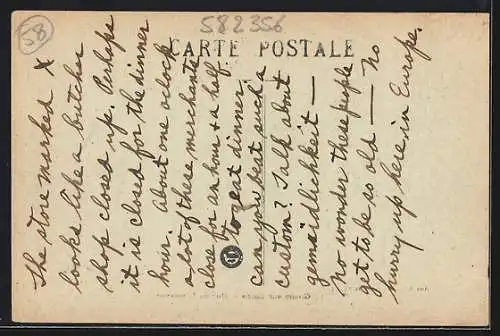 58
582356
CARTE POSTALE
The store marked X
looks like a butcher
shop closed up. Perhaps
it is closed for the dinner
hour. About one o-clock
a lot of these merchants
close for an hour & a half
to eat dinner,
can you beat such a
custom? Talk about
gemaidlichkeit —
No wonder these people
get to be so old — No
hurry up here in Europe.